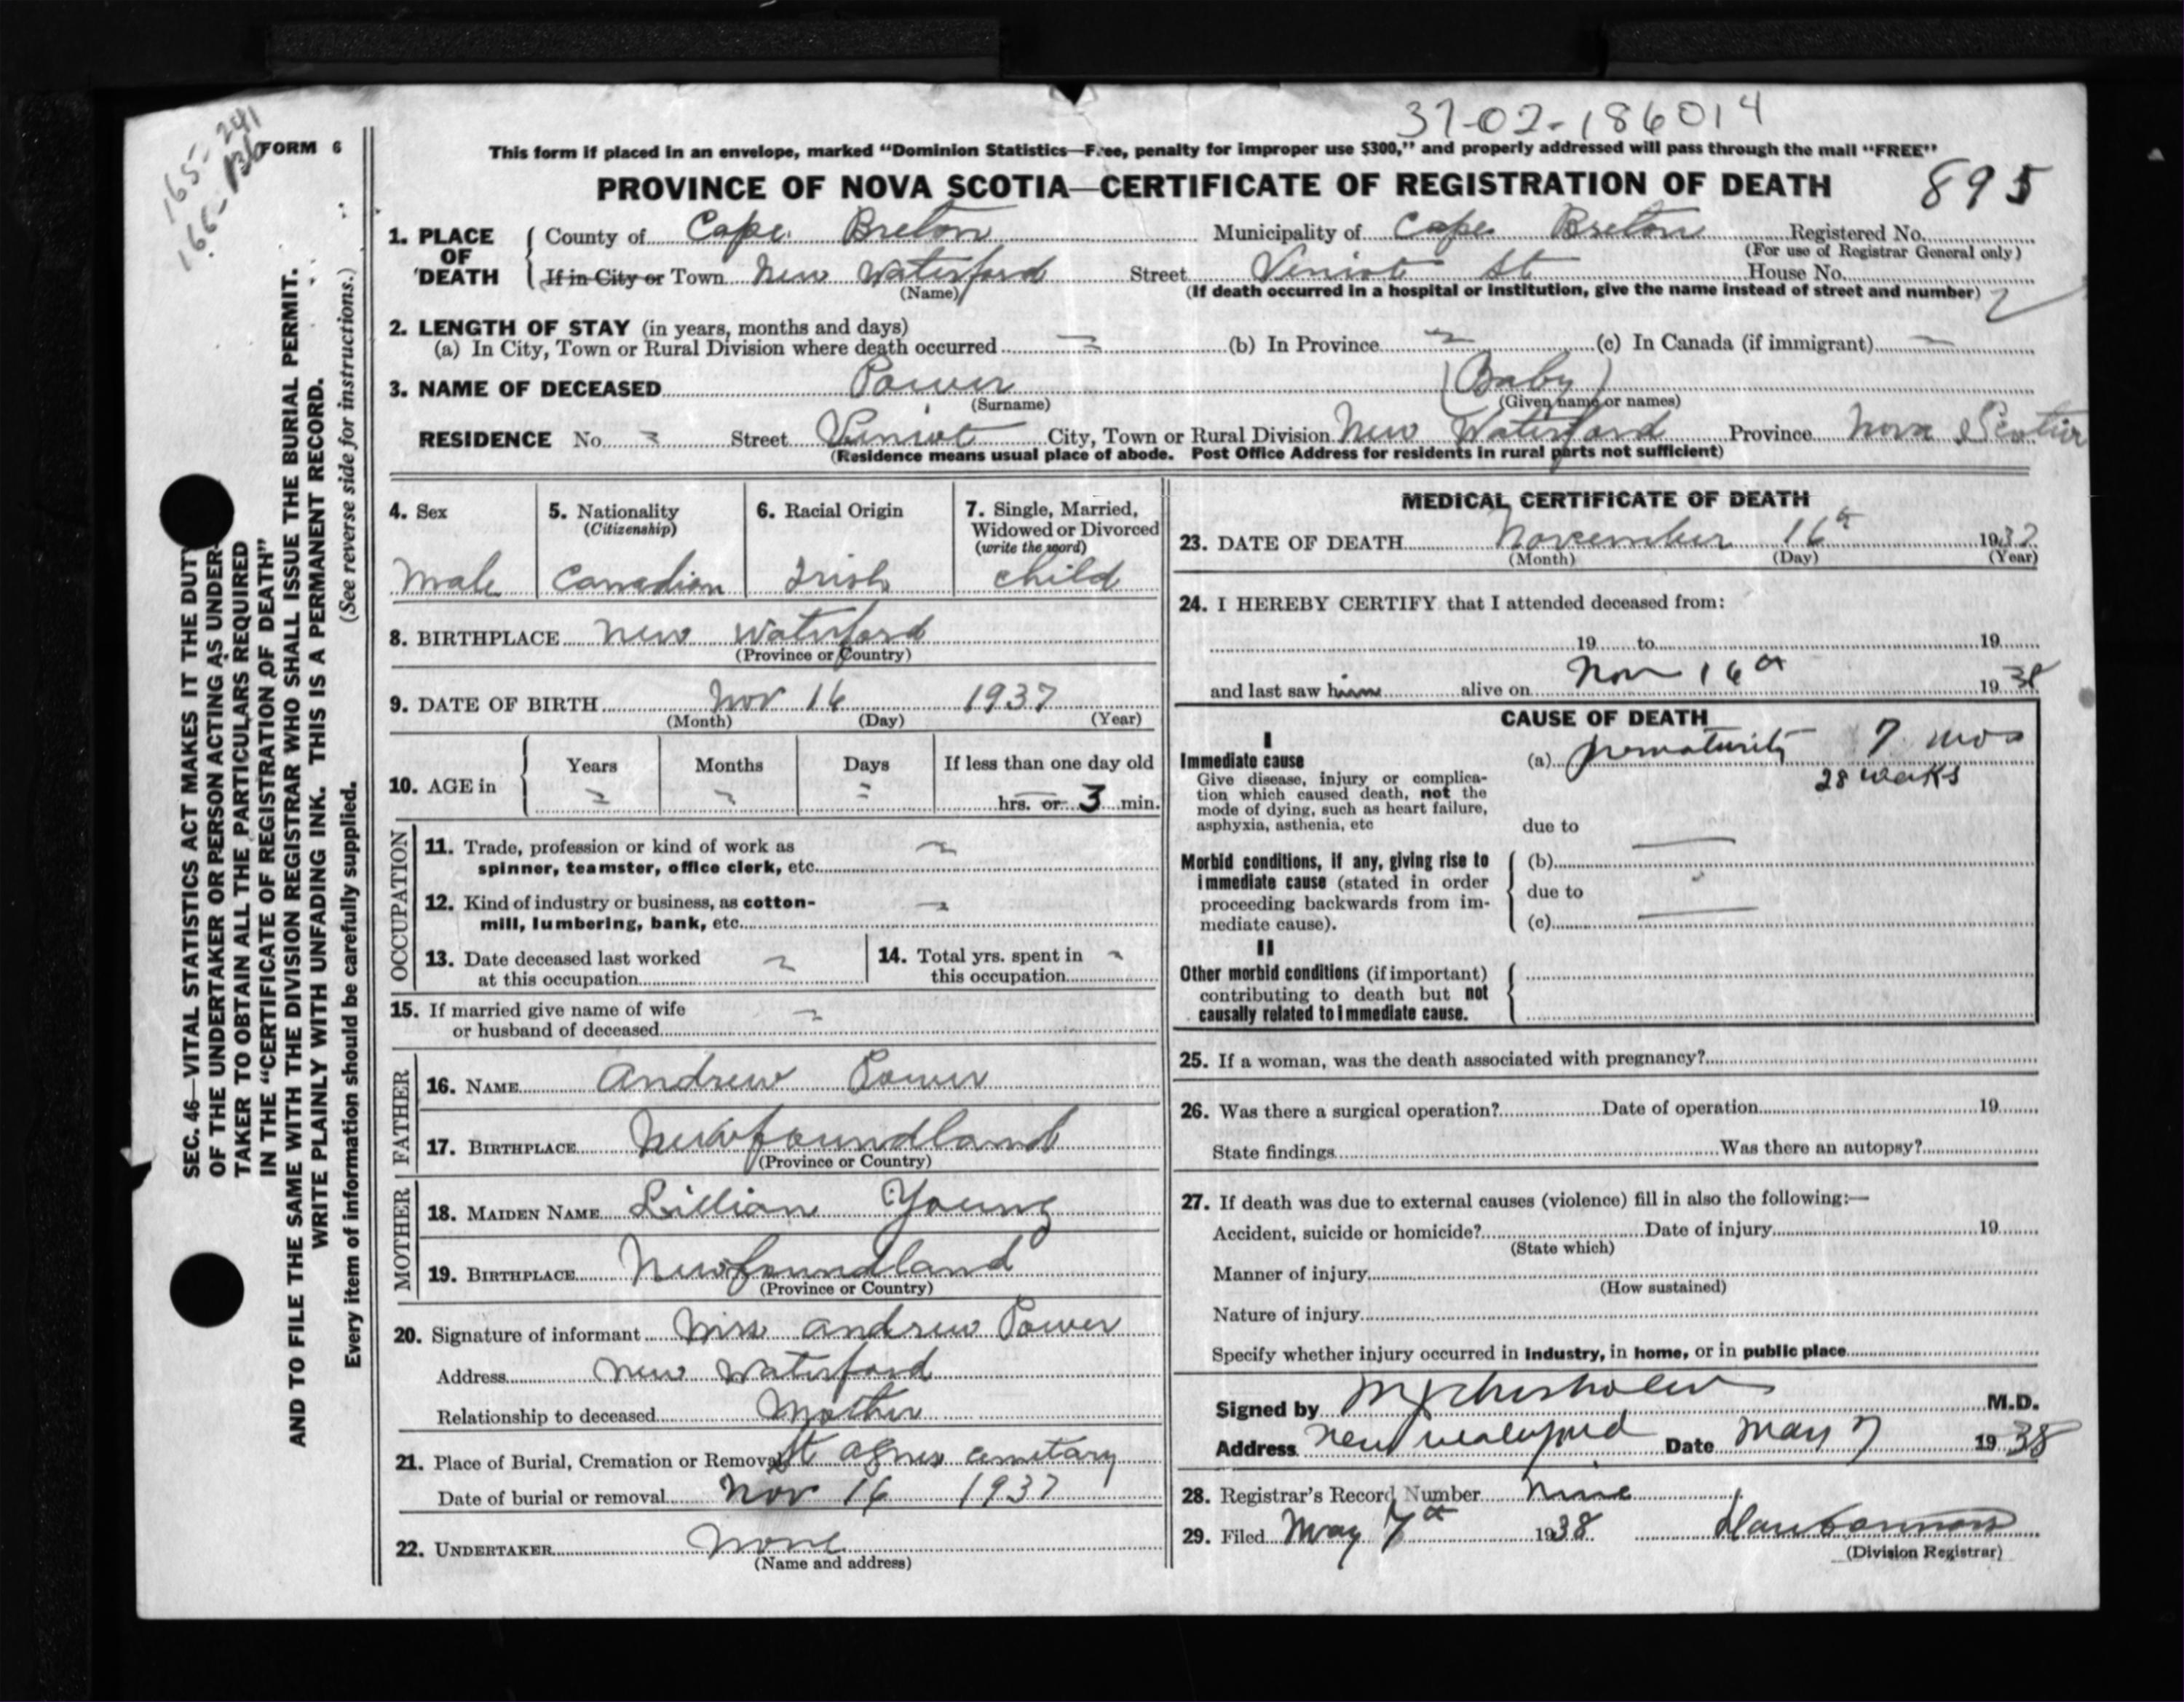 37-02-186014
165-241
166-136
FORM 6
This form if placed in an envelope, marked "Dominion Statistics—Free, penalty for improper use $300," and properly addressed will pass through the mail "FREE"
PROVINCE OF NOVA SCOTIA—CERTIFICATE OF REGISTRATION OF DEATH 895
1. PLACE OF DEATH County of Cape Breton Municipality of Cape Breton Registered No.
(For use of Registrar General only)
If in City or Town New Waterford Street St House No.
(Name) (If death occurred in a hospital or institution, give the name instead of street and number)
2. LENGTH OF STAY (in years, months and days)
(a) In City, Town or Rural Division where death occurred (b) In Province (c) In Canada (if immigrant)
3. NAME OF DECEASED Power (Baby)
(Surname) (Given name or names)
RESIDENCE No. Street City, Town or Rural Division New Waterford Province Nova Scotia
(Residence means usual place of abode. Post Office Address for residents in rural parts not sufficient)
4. Sex
Male
5. Nationality
(Citizenship)
Canadian
6. Racial Origin
Irish
7. Single, Married,
Widowed or Divorced
(write the word)
child
8. BIRTHPLACE New Waterford
(Province or Country)
9. DATE OF BIRTH Nov 16 1937
(Month) (Day) (Year)
10. AGE in Years Months Days If less than one day old
hrs. or 3 min.
OCCUPATION
11. Trade, profession or kind of work as
spinner, teamster, office clerk, etc.
12. Kind of industry or business, as cotton-
mill, lumbering, bank, etc.
13. Date deceased last worked
at this occupation
14. Total yrs. spent in
this occupation
15. If married give name of wife
or husband of deceased
FATHER
16. NAME Andrew Power
17. BIRTHPLACE Newfoundland
(Province or Country)
MOTHER
18. MAIDEN NAME Lillian Young
19. BIRTHPLACE Newfoundland
(Province or Country)
20. Signature of informant Mrs Andrew Power
Address New Waterford
Relationship to deceased Mother
21. Place of Burial, Cremation or Removal St Agnes cemetary
Date of burial or removal Nov 16 1937
22. UNDERTAKER None
(Name and address)
MEDICAL CERTIFICATE OF DEATH
23. DATE OF DEATH November 16th 1937
(Month) (Day) (Year)
24. I HEREBY CERTIFY that I attended deceased from:
19 to 19
and last saw him alive on Nov 16th 1938
CAUSE OF DEATH
I
Immediate cause
Give disease, injury or complica-
tion which caused death, not the
mode of dying, such as heart failure,
asphyxia, asthenia, etc
(a) prematurity 7 mos
28 weeks
due to
Morbid conditions, if any, giving rise to
immediate cause (stated in order
proceeding backwards from im-
mediate cause).
(b)
due to
(c)
II
Other morbid conditions (if important)
contributing to death but not
causally related to immediate cause.
25. If a woman, was the death associated with pregnancy?
26. Was there a surgical operation? Date of operation 19
State findings Was there an autopsy?
27. If death was due to external causes (violence) fill in also the following:—
Accident, suicide or homicide? Date of injury 19
(State which)
Manner of injury
(How sustained)
Nature of injury
Specify whether injury occurred in industry, in home, or in public place
Signed by M.D.
Address New Waterford Date May 7 1938
28. Registrar's Record Number Nine
29. Filed May 7th 1938
(Division Registrar)
SEC. 46—VITAL STATISTICS ACT MAKES IT THE DUTY
OF THE UNDERTAKER OR PERSON ACTING AS UNDER-
TAKER TO OBTAIN ALL THE PARTICULARS REQUIRED
IN THE "CERTIFICATE OF REGISTRATION OF DEATH"
AND TO FILE THE SAME WITH THE DIVISION REGISTRAR WHO SHALL ISSUE THE BURIAL PERMIT.
WRITE PLAINLY WITH UNFADING INK. THIS IS A PERMANENT RECORD.
Every item of information should be carefully supplied. (See reverse side for instructions.)